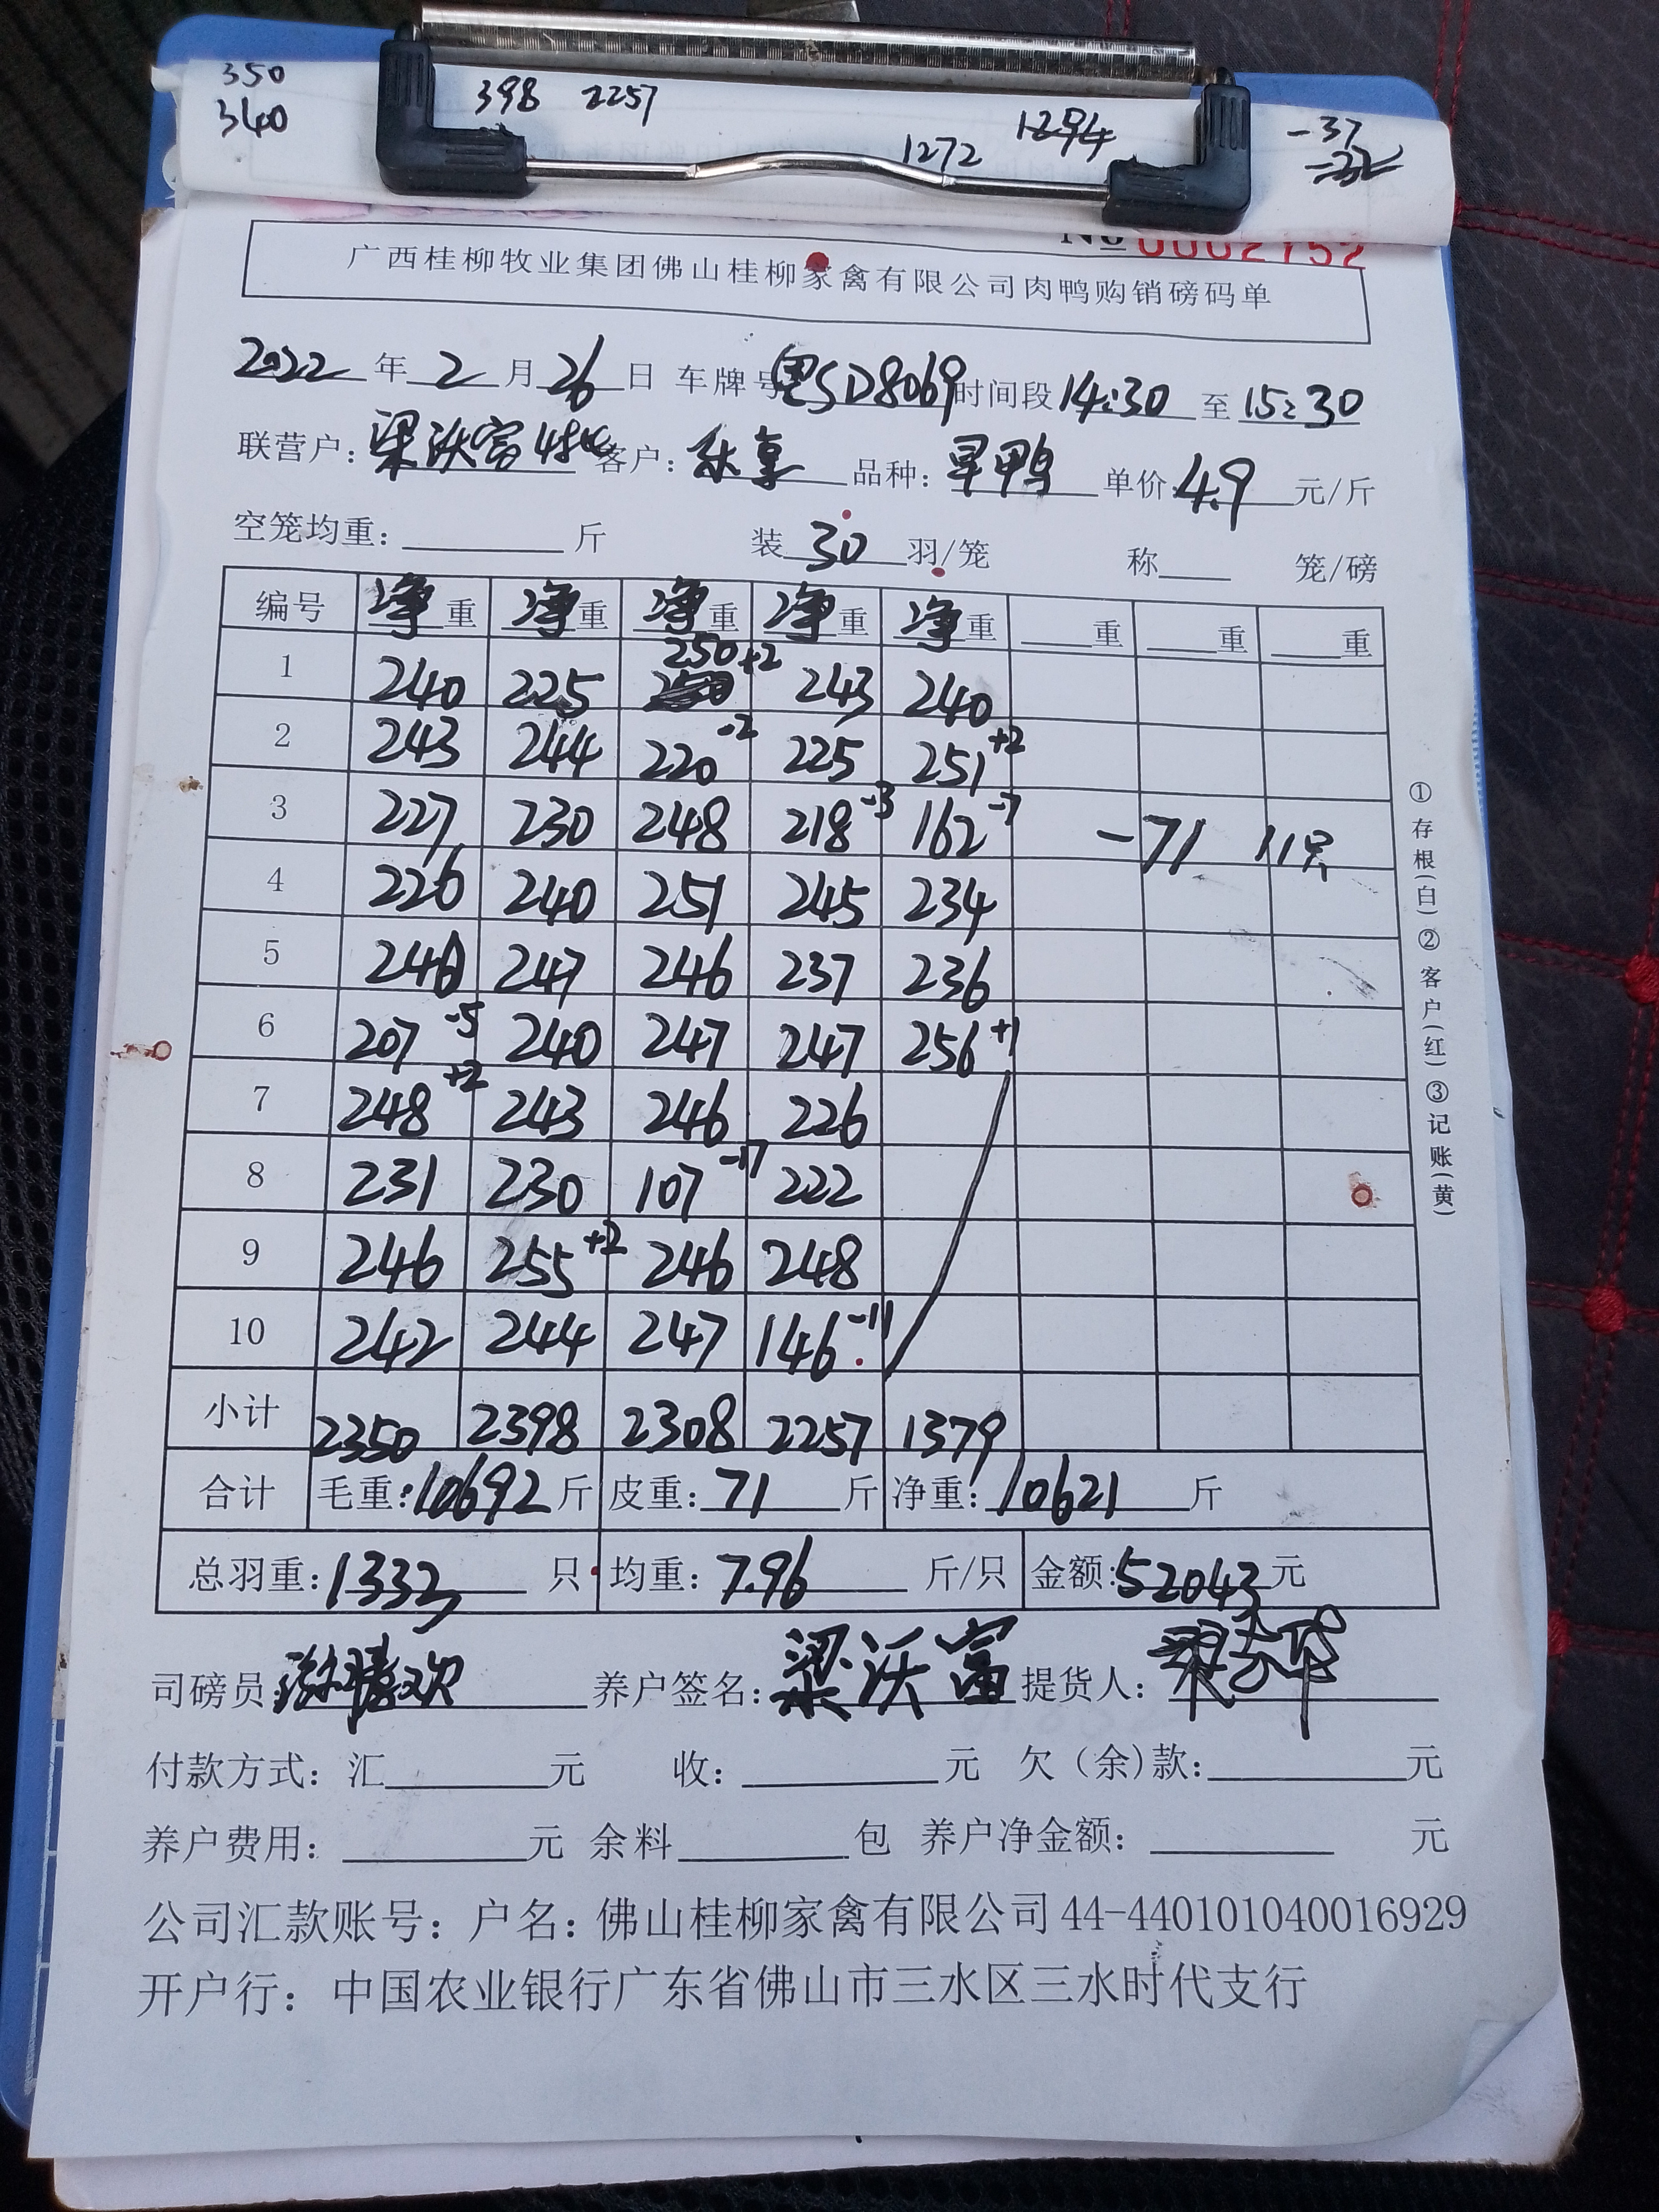 350 398 2257 1294 -37
340 1272 -32
No 0002752
广西桂柳牧业集团佛山桂柳家禽有限公司肉鸭购销磅码单
2022年2月26日 车牌号粤SD8069时间段14:30至15:30
联营户:梁沃富 客户: 品种:旱鸭 单价4.9元/斤
空笼均重:______斤 装30羽/笼 称____笼/磅
编号 净重 净重 净重 净重 净重 ___重 ___重 ___重
1 240 225 250+2 243 240
2 243 244 220-2 225 251+2
3 227 230 248 218-3 162-7 -71 11只
4 226 240 251 245 234
5 240 247 246 237 236
6 207-5 240 247 247 256+1
7 248+2 243 246 226
8 231 230 107-17 222
9 246 255+2 246 248
10 242 244 247 146-11
小计 2350 2398 2308 2257 1379
合计 毛重:10692斤 皮重:71斤 净重:10621斤
总羽重:1332只 均重:7.96斤/只 金额:52043元
司磅员 养户签名:梁沃富 提货人:
付款方式:汇______元 收:______元 欠(余)款:______元
养户费用:______元 余料______包 养户净金额:______元
公司汇款账号:户名:佛山桂柳家禽有限公司44-440101040016929
开户行:中国农业银行广东省佛山市三水区三水时代支行
①存根(白)②客户(红)③记账(黄)